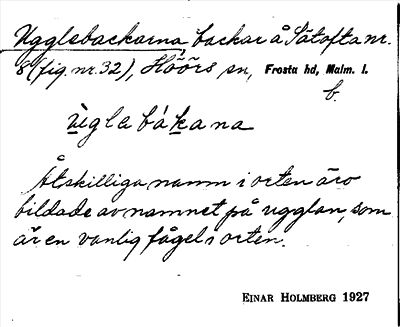 Ugglebackarna, backar å Sätofta nr.
8 (fig. nr. 32), Höörs sn, Frosta hd, Malm. l.
b.
ùglabákana
Åtskilliga namn i orten äro
bildade av namnet på ugglan, som
är en vanlig fågel i orten.
EINAR HOLMBERG 1927